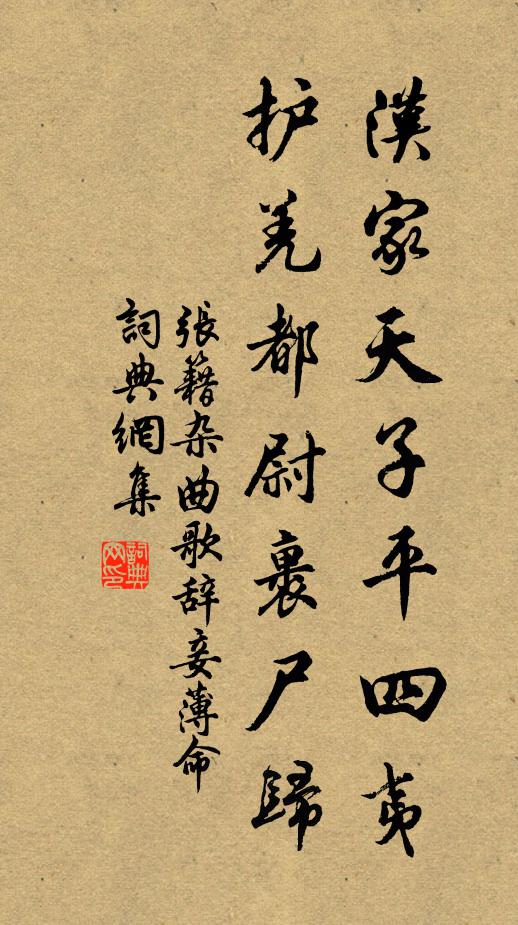 漢家天子平四夷
护羌都尉裹尸歸
張籍杂曲歌辞妾薄命
詞典網集
詞典网印